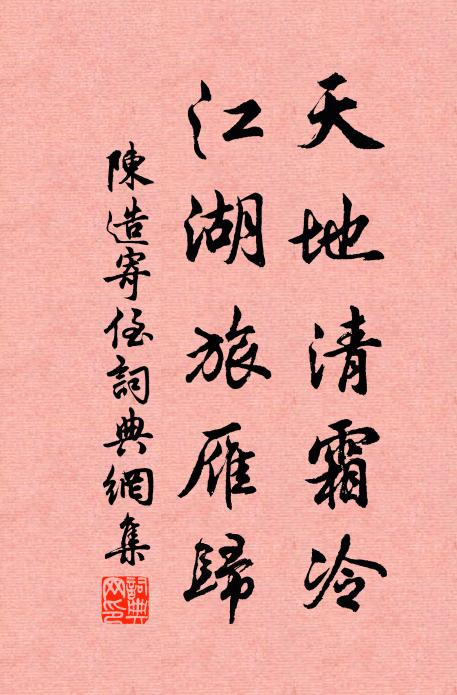 天地清霜冷
江湖旅雁歸
陳造寄侄詞典網集
詞典網印